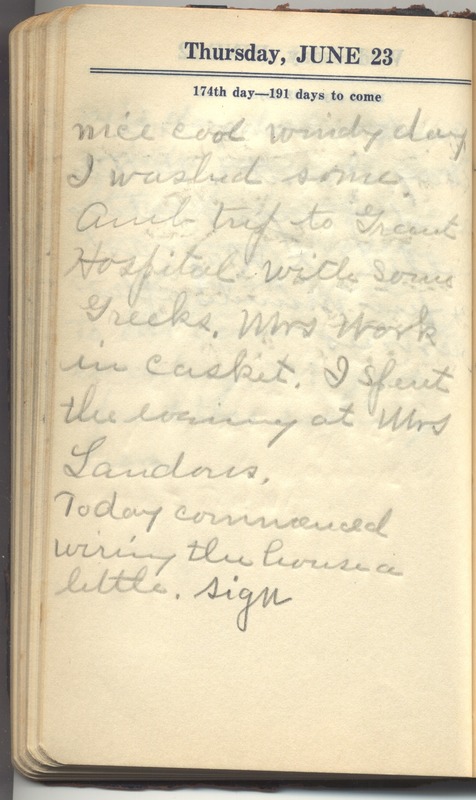 Thursday, JUNE 23
174th day—191 days to come
nice cool windy day
I washed some.
Amb trip to Grant
Hospital with some
Greeks. Mrs Work
in casket. I spent
the evening at Mrs
Landons.
Today commenced
wiring the house a
little. sign